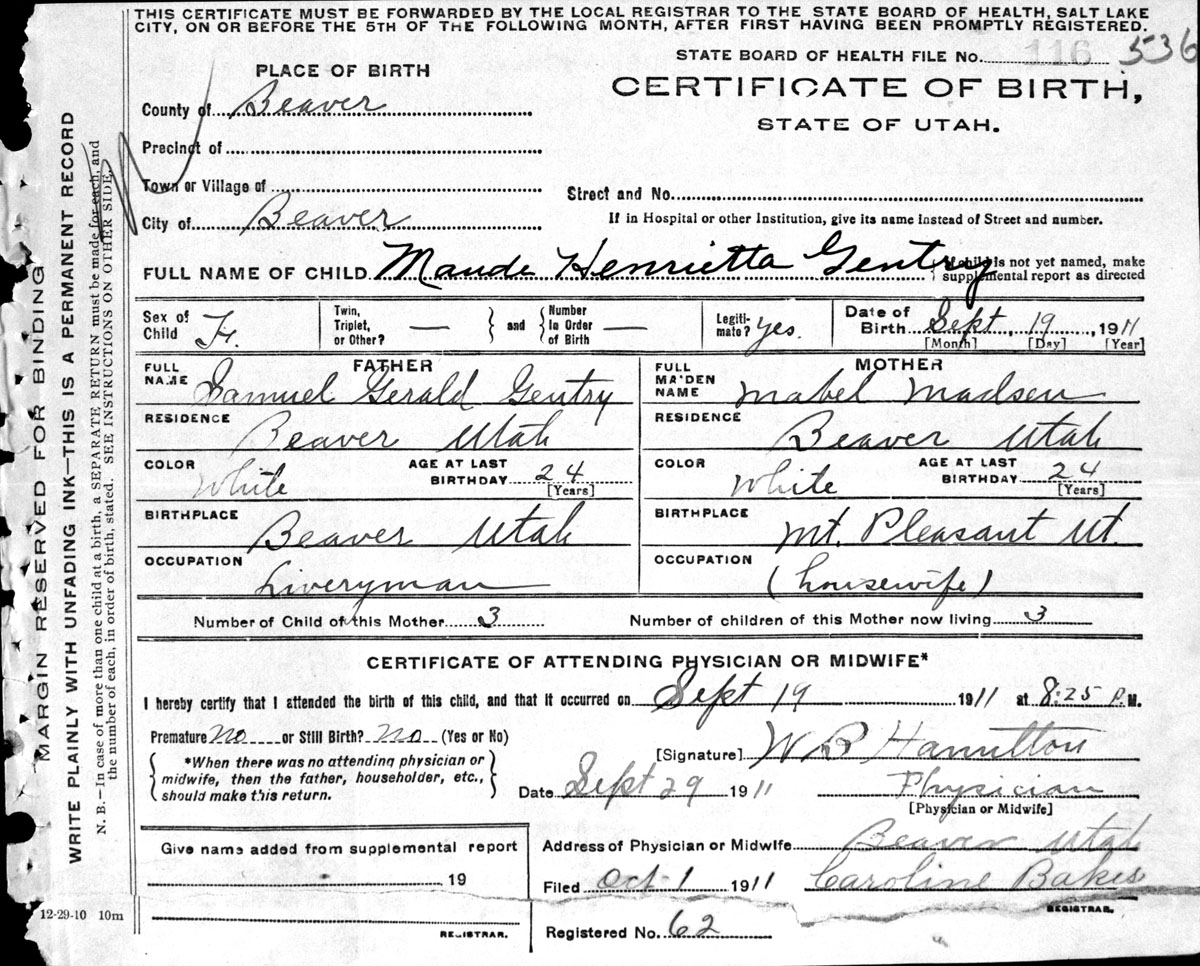 THIS CERTIFICATE MUST BE FORWARDED BY THE LOCAL REGISTRAR TO THE STATE BOARD OF HEALTH, SALT LAKE
CITY, ON OR BEFORE THE 5TH OF THE FOLLOWING MONTH, AFTER FIRST HAVING BEEN PROMPTLY REGISTERED.
STATE BOARD OF HEALTH FILE No. 116 536
PLACE OF BIRTH
CERTIFICATE OF BIRTH,
STATE OF UTAH.
County of Beaver
Precinct of
Town or Village of
Street and No.
City of Beaver
If in Hospital or other Institution, give its name instead of Street and number.
FULL NAME OF CHILD Maude Henrietta Gentry
{If child is not yet named, make
supplemental report as directed
Sex of Child F.
Twin, Triplet, or Other? —
and
Number In Order of Birth —
Legiti-mate? yes.
Date of Birth Sept, 19, 1911
[Month] [Day] [Year]
FATHER
FULL NAME Samuel Gerald Gentry
RESIDENCE Beaver Utah
COLOR White
AGE AT LAST BIRTHDAY 24
[Years]
BIRTHPLACE Beaver Utah
OCCUPATION Liveryman
MOTHER
FULL MAIDEN NAME Mabel Madsen
RESIDENCE Beaver Utah
COLOR White
AGE AT LAST BIRTHDAY 24
[Years]
BIRTHPLACE Mt. Pleasant Ut.
OCCUPATION (housewife)
Number of Child of this Mother 3
Number of children of this Mother now living 3
CERTIFICATE OF ATTENDING PHYSICIAN OR MIDWIFE*
I hereby certify that I attended the birth of this child, and that it occurred on Sept 19 1911 at 8:25 P.M.
Premature No or Still Birth? No (Yes or No)
[Signature] W R Hamilton
*When there was no attending physician or
midwife, then the father, householder, etc.,
should make this return.
Date Sept 29 1911
Physician
[Physician or Midwife]
Give name added from supplemental report
19
REGISTRAR.
Address of Physician or Midwife Beaver Utah
Filed Oct 1 1911 Caroline Bakes
REGISTRAR.
Registered No. 62
12-29-10 10m
MARGIN RESERVED FOR BINDING
WRITE PLAINLY WITH UNFADING INK—THIS IS A PERMANENT RECORD
N. B.—In case of more than one child at a birth, a SEPARATE RETURN must be made for each, and
the number of each, in order of birth, stated. SEE INSTRUCTIONS ON OTHER SIDE.